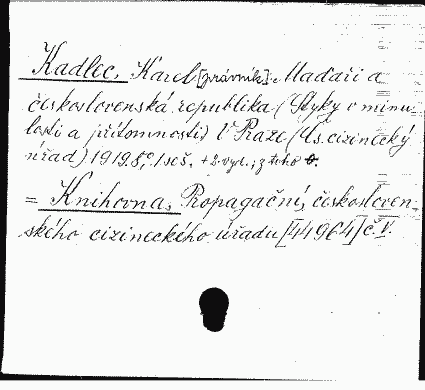 Kadlec, Karel [právník]: Maďaři a
československá republika (Styky v minu-
losti a přítomnosti) V Praze (Čs. cizinecký
úřad) 1919. 8°. 1 seš. + 2. vyd.; z toho
= Knihovna, Propagační, českosloven-
ského cizineckého úřadu [44964] č. V.